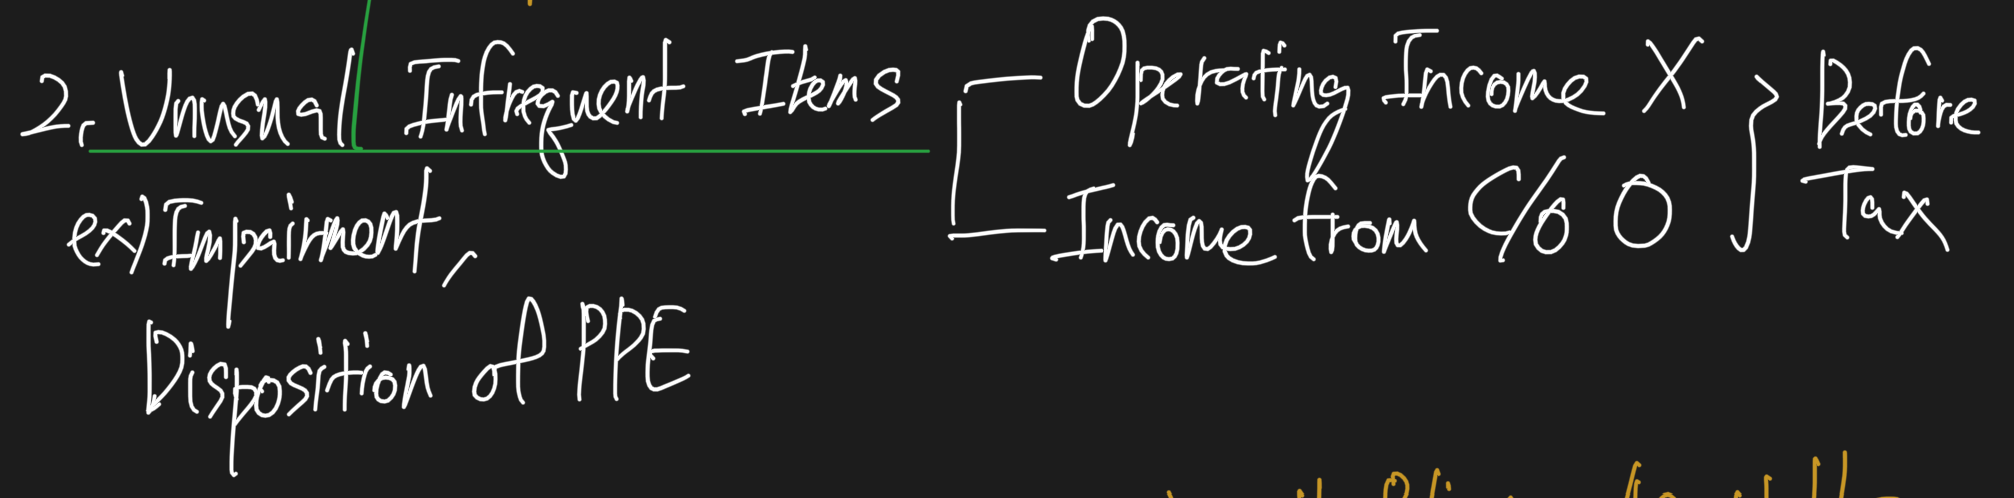 2. Unusual/Infrequent Items
Operating Income X
Income from C/O O
Before
Tax
ex) Impairment,
Disposition of PPE